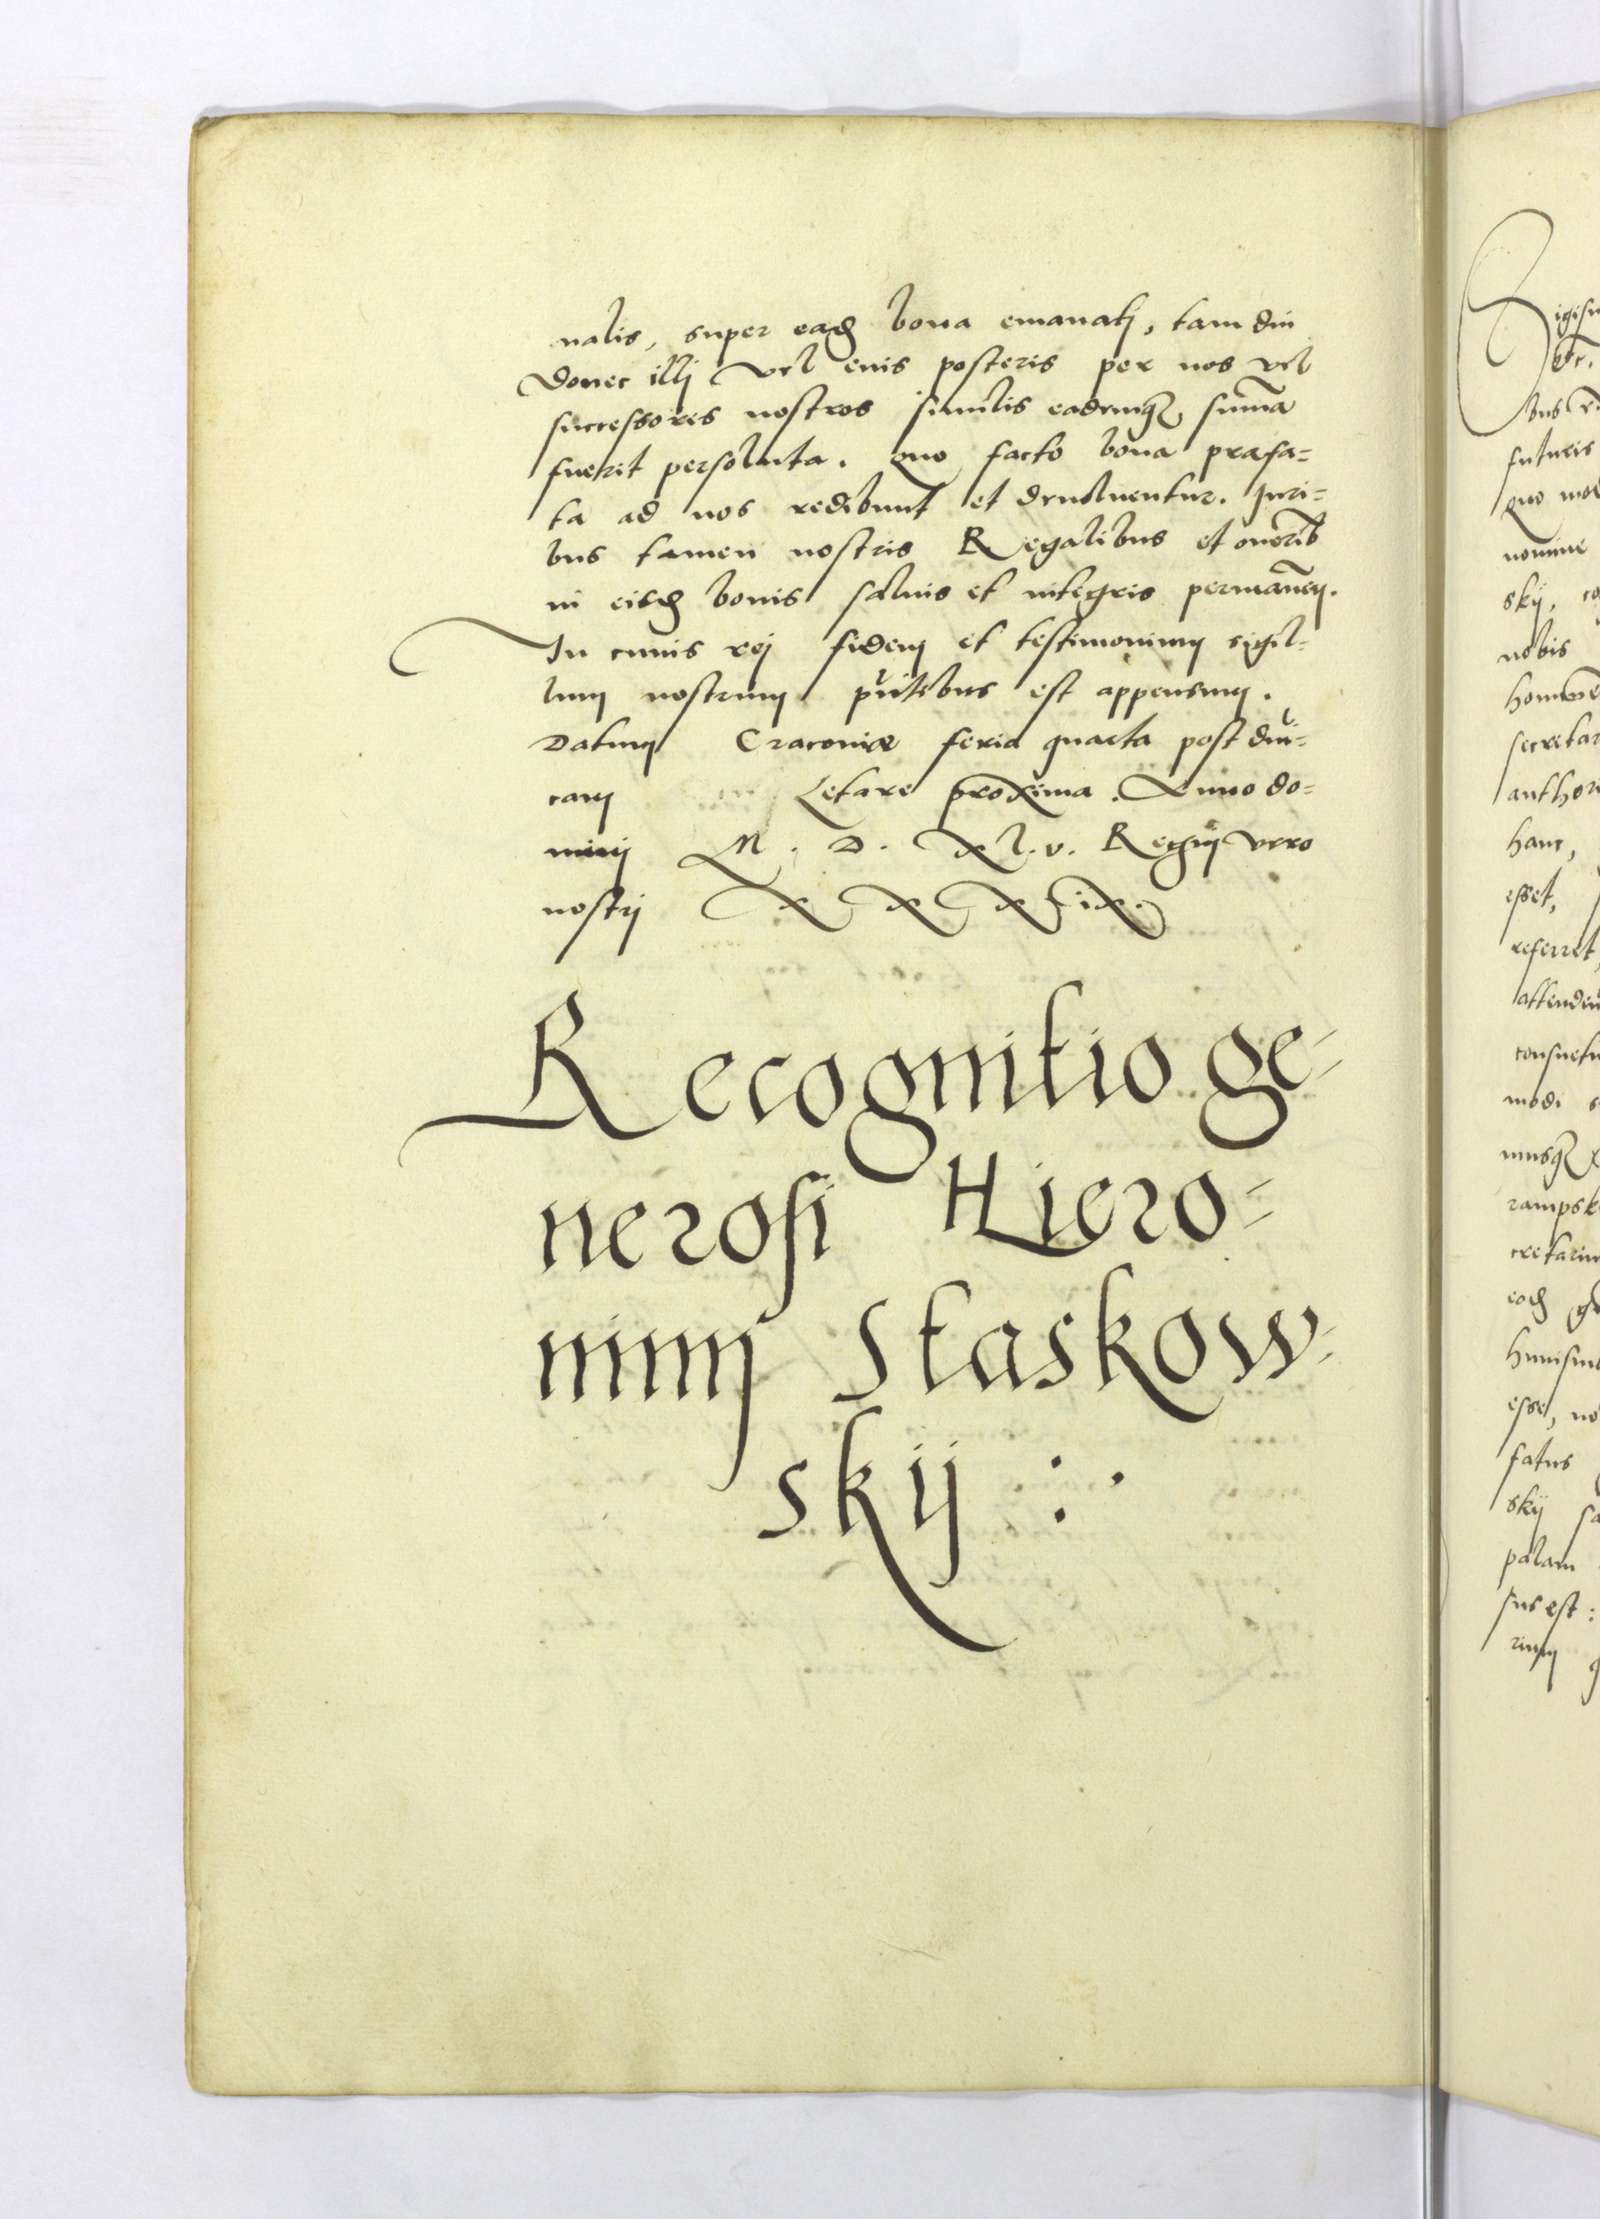 nalis, super eadẽ bona emanatj, tam diu
donec illj vel euis posteris per nos vel
successores nostros similis eademqꝫ sum̃a
fuerit persoluta. Quo facto bona præfa=
ta ad nos redibunt et deuoluentur. Juri=
bus tamen nostris Regalibus et onerib̃
in eisdẽ bonis saluis et integris permanen̄.
In cuius rej fidem et testimonium sigil=
lum nostrum pñtibus est appensum.
Datum Cracouiæ feria quarta post dñi=
cam Letare proxima. Anno do=
minj M. D. xl.v. Regnj vero
nostrj x x x ix.
Recognitio ge=
nerosi Hiero=
nimj Staskow=
skij :·
Sigism
etc.
bus r
futuris
quo mod
nomine
skij, co
nobis
homine
secretar
authori
hanc,
esset,
referret,
attenden
consuetu
modi s
musqꝫ
rampsk
cretariu
eodẽ g
huiusmo
esse, no
fatus
skij sa
palam
sus est:
rium q